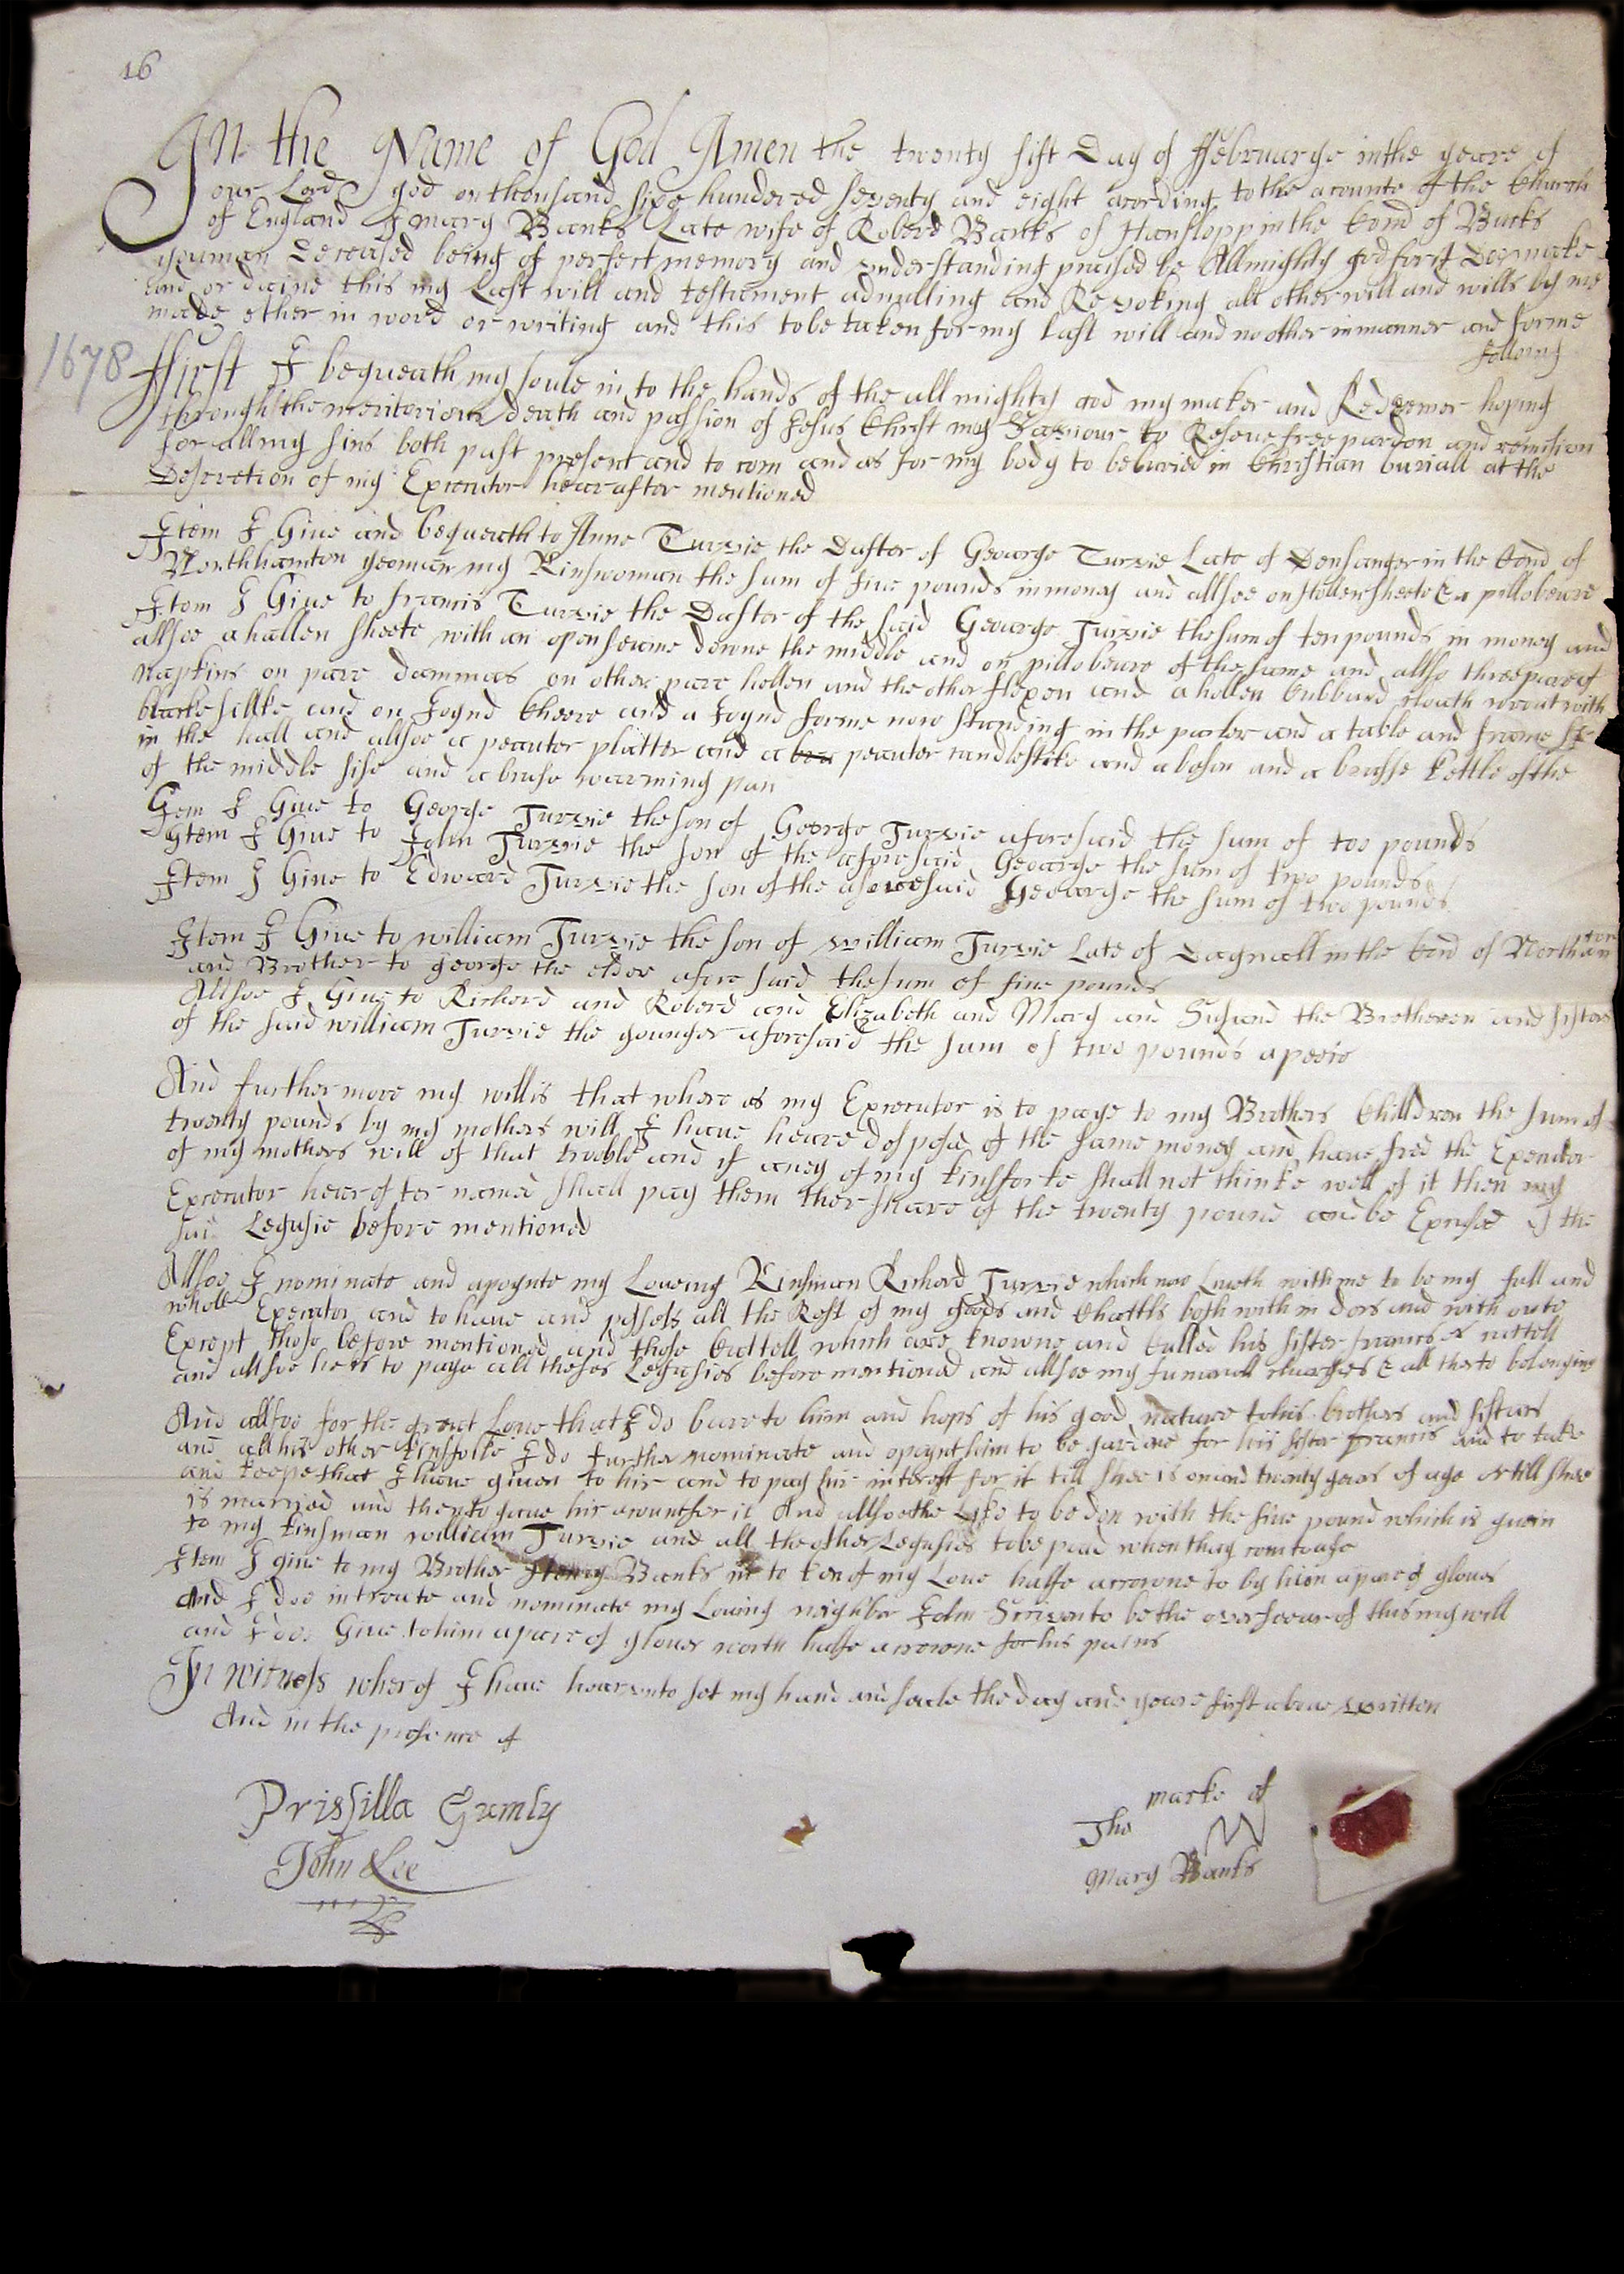 16
In the Name of God Amen the twenty fift Day of Ffebruarye in the yeare of
our Lord god on thousand sixe hundered seventy and eight acording to the acounte of the Church
of England I mary Banks Late wife of Roberd Banks of Hanslopp in the Cond of Bucks
youman deceased being of perfect memory and understanding praised be Allmighty god for it Doe make
and ordaine this my Last will and testiament adnulling and Revoking all other will and wills by me
made ether in word or writing and this to be taken for my last will and no other in manner and forme
following
1678
Ffirst I bequeath my soule in to the hands of the all mighty god my maker and Redeemer hoping
through the meritorious death and passion of Jesus Christ my Saviour to Reseve free pardon and remision
for all my sins both past present and to com and as for my body to be buried in Christian buriall at the
Descretion of my Executor hearafter mentioned
Item I Give and bequeath to Anne Turvie the Dafter of George Turvie Late of Densanger in the Cond of
Northhamton yeoman my Kinswoman the sum of five pounds in mony and allsoe on hollen sheete & a pillobeare
Item I Give to francis Turvie the Dafter of the said George Turvie the sum of ten pounds in money and
allsoe a hallen sheete with an open seame downe the middle and on pillobeare of the same and allso three pare of
napkins on pare dammas on other pare hollen and the other flexen and a hollen Cubburd cloath wrout with
blacke sillke and on Joynd Cheere and a Joynd forme now standing in the parlor and a table and frame
in the hall and allsoe a peauter platter and a peauter candlestike and a beson and a brasse kettle of the
of the middle sise and a brase warming pan
Item I Give to George Turvie the son of George Turvie aforesaid the sum of too pounds
Item I Give to John Turvie the son of the aforesaid George the sum of two pounds
Item I Give to Edward Turvie the son of the aforesaid George the sum of two pounds
Item I Give to william Turvie the son of william Turvie Late of Dagnall in the Cond of Northamton
and Brother to george the elder afore said the sum of five pounds
Allsoe I Give to Richard and Roberd and Elizabeth and Mary and Susand the Brotheren and sisters
of the said william Turvie the younger aforesaid the sum of two pounds a peeic
And further more my will is that where as my Executor is to paye to my Brothers Chilldren the sum of
twenty pounds by my mothers will I have heare desposed of the same money and have fred the Executor
of my mothers will of that trouble and if aney of my kinsforke shall not thinke well of it then my
Executor hearofter named shall pay them ther share of the twenty pound and be Excused of the
said Legasie before mentioned
Allsoe I nominate and apoynte my Loveing Kinsman Richard Turvie which now Liveth with me to be my full and
wholle Executor and to have and posses all the Rest of my goods and Chattls both with in dors and with oute
Except those before mentioned and those Cattell which are knowne and Called his sister francis cattell
and allsoe hee is to paye all theses Legasies before mentioned and allsoe my funerall charges & all therto belonging
And allsoe for the great Love that I do bare to him and hops of his good nature to his brothers and sisters
and all his other kinsfolke I do further nominate and apoynt him to be gardine for his sister francis and to take
and keepe that I have given to hir and to pay hir interest for it till shee is on and twenty years of age or till shee
is married and then to gave hir acount for it And allsoe the Like to be don with the five pound which is given
to my kinsman william Turvie and all the other Legasies to be paid when they com to age
Item I give to my Brother Henry Banks in token of my Love halfe a crowne to by him a pare of gloves
And I doe intreate and nominate my Loving neighbor John Scriven to be the overseear of this my will
and I doe Give to him a pare of gloves worth halfe a crowne for his pains
In witness wherof I have hearunto set my hand and seale the day and yeare first above written
And in the presence of
Prissilla Gumly
John Lee
The marke of
Mary Banks